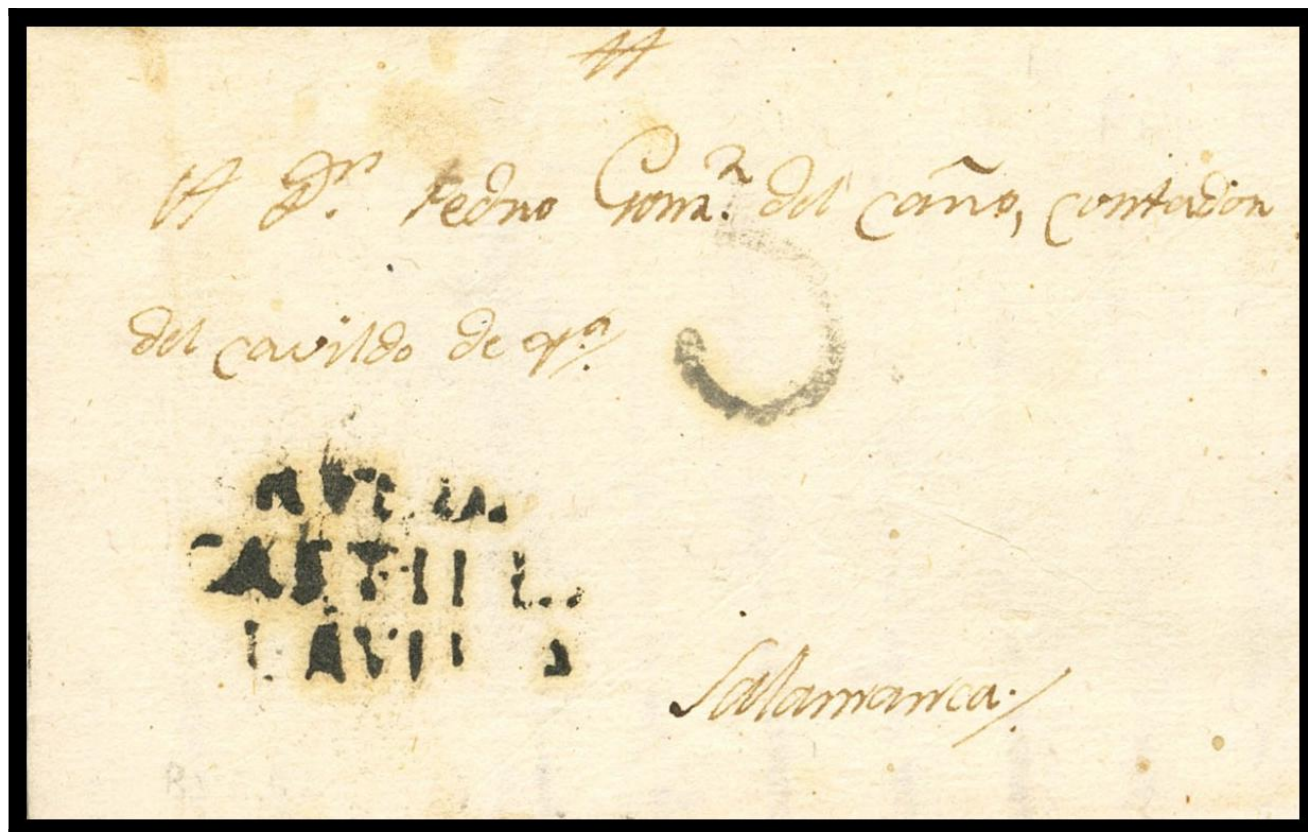 A Dn. Pedro Gomz. del caño, contador
del cavildo de
CASTILL
LAVILLA
Salamanca.